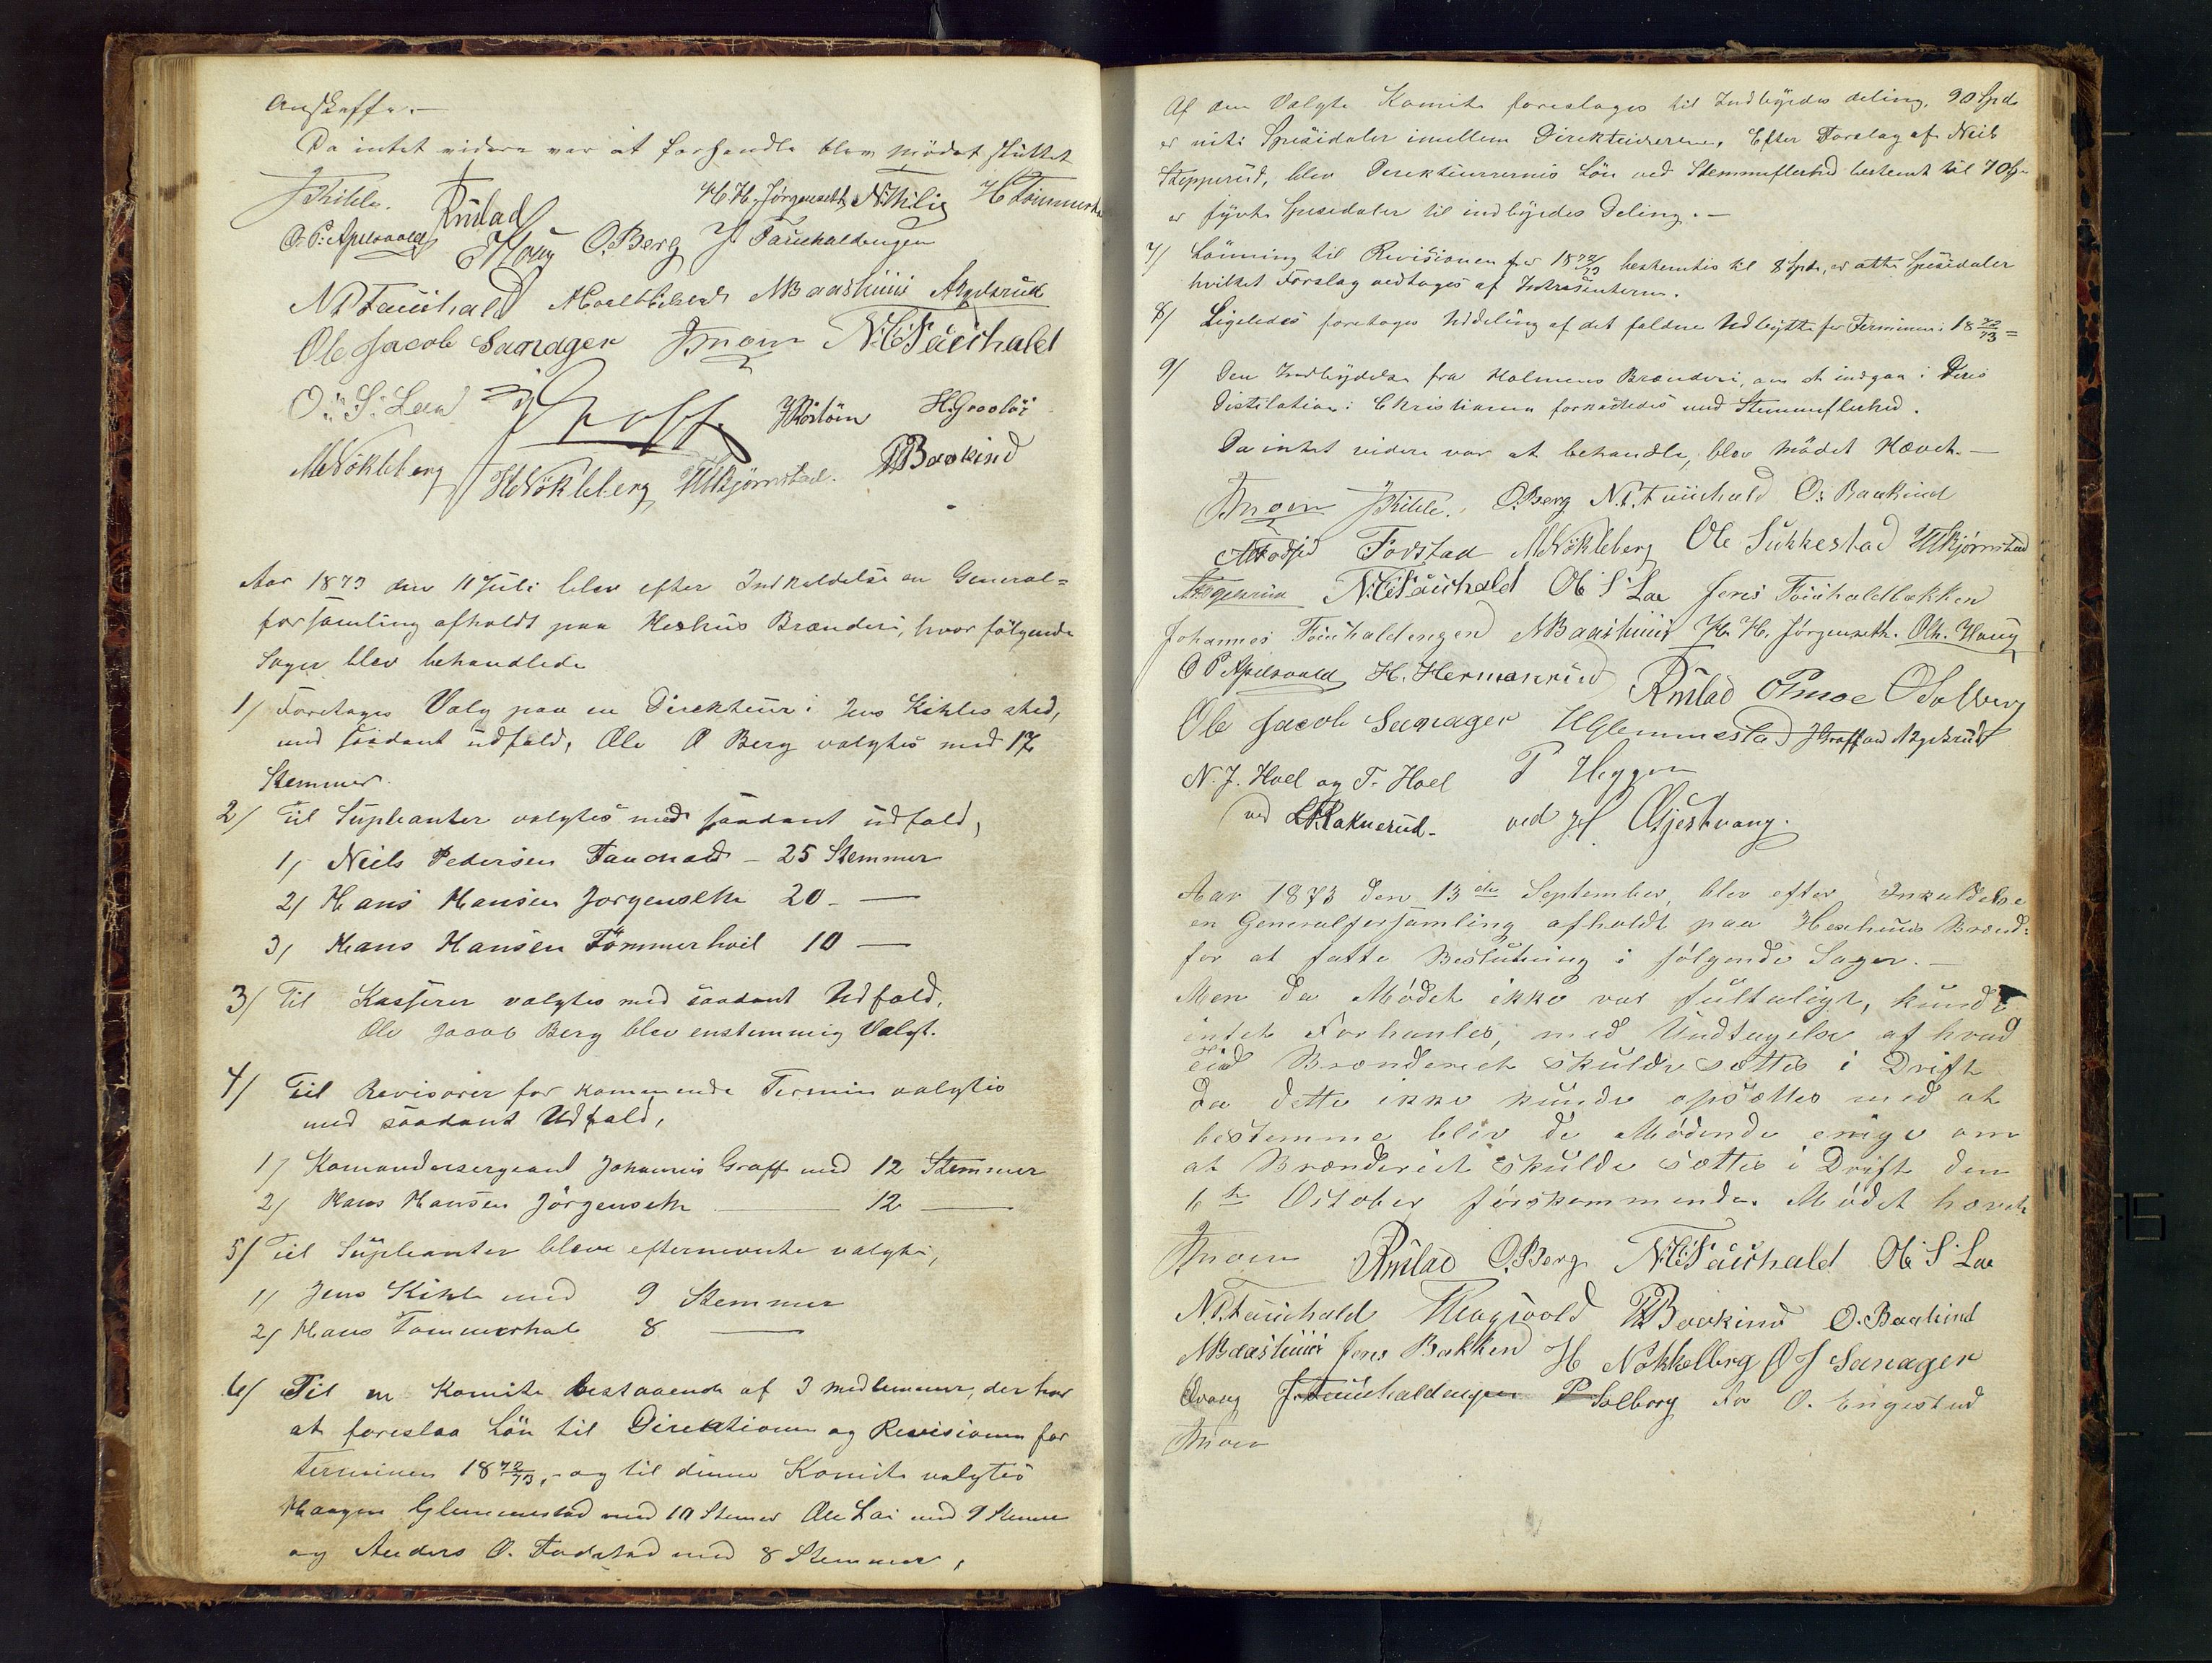 Anskaffe. —
Da intet videre var at forhandle blev Mödet sluttet
JKihle. Rustad H. H. Jörgenseth NKihlis H Tömmerh
O. P. Apelsvold Haug O. Berg J Fauchaldengen
N P Fauchald NBaashuus AOgelsrud
Ole Jacob Sanager JMoen N. C. Fauchald
O: S: Lee JGraff. H. Grosløs
MNökleberg HNökleberg HKjörnstad. PBaakind
Aar 1873 den 11 Juli blev efter Indkaldelse en General=
forsamling afholdt paa Heshuus Brænderi, hvor fölgende
Sager blev behandlede
1/ Foretages Valg paa en Direkteur i Jens Kihles sted,
med saadant udfald, Ole O Berg valgtes med 17
Stemmer.
2/ Til Supleanter valgtes med saadant udfald,
1, Niels Pedersen Fauchald — 25 Stemmer
2, Hans Hansen Jörgenseth 20 — —
3, Hans Hansen Tömmerhoil 10 —
3/ Til Kasserer valgtes med saadant Udfald,
Ole Jacob Berg blev enstemmig Valgt.
4/ Til Revisorer for kommende Termin valgtes
med saadant Udfald,
1/ Komandersergeant Johannes Graff med 12 Stemmer
2/ Hans Hansen Jörgenseth — 12 —
5/ Til Supleanter bleve efternevnte valgte,
1/ Jens Kihle med 9 Stemmer
2/ Hans Tommerhol 8 —
6/ Til en Komite bestaaende af 3 medlemmer, der har
at foreslaa Lön til Direktionen og Revisionen for
Terminen 18 72/73, og til denne Komite valgtes
Haagen Glemmestad med 10 Stemer Ole Lai med 9 Stemer
og Anders O. Fodstad med 8 Stemmer,
Af den Valgte Komite foreslages til Indbyrdes deling, 90 Spd
er niti Spesidaler imellem Direkteurerne. Efter Forslag af Neils
Stepperud, blev Direkteurrernes Lön ved Stemmeflerhed bestemt til 70 Sp
er syvti Spesidaler til indbyrdes Deling. —
7/ Lönning til Revisionen for 18 72/73 bestemtes til 8 Spd, er otte Spesidaler
hvilket Forslag vedtages af Intresenterne.
8/ Ligeledes foretages Uddeling af det faldne Udbytte for Terminen 18 72/73 =
9/ Den Indbydelse fra Holmens Brænderi, om at indgaa i Deres
Distilation i Christiania forkastedes med Stemmeflerhed.
Da intet videre var at behandle, blev Mödet Hævet. —
JMoen JKihle. O. Berg N. P. Fauchald O: Baakind
Fodstad MNökleberg Ole Sukkestad HKjörnstad
AOgelsrud N. C. Fauchald Ole S Lae Jens Fauchaldbakken
Johannes Fauchaldengen NBaashuus H. H. Jörgenseth. Oh. Haug
O P Apelsvold H. Hermanrud Rustad PMoe OSolberg
Ole Jacob Sanager HGlemmestad JGraff ved AOgelsrud
N. J. Hoel og T. Hoel P Heggen
ved LRaknerud. ved H Gjestvang.
Aar 1873 den 13de September, blev efter Inkaldelse
en Generalforsamling afholdt paa Heshuus Brænd:
for at fatte Beslutning i følgende Sager. —
Men da Mödet ikke var fultaligt, kunde
intet Forhanles, med Undtagelse af hvad
Tid Brænderiet skulde sættes i Drift
da dette ikke kunde opsættes med at
bestemme blev de Mödende enige om
at Brænderiet skulde sættes i Drift den
6te October førskommende. Mödet hævet
JMoen Rustad O. Berg N. C. Fauchald Ole S Lae
N. P. Fauchald PBaakind O. Baakind
NBaashuus Jens Bakken H Nökkelberg O J Sanager
J. Fauchaldengen P Solberg for O. Engestad
JMoen